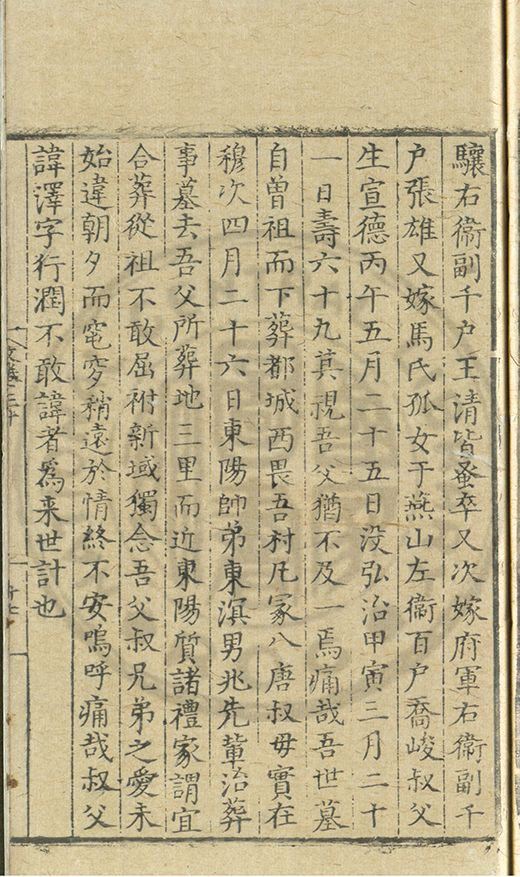 驤右衞副千户王清皆蚤卒又次嫁府軍右衞副千
户張雄又嫁馬氏孤女于燕山左衞百户喬峻叔父
生宣德丙午五月二十五日没弘治甲寅三月二十
一日壽六十九其視吾父猶不及一焉痛哉吾世墓
自曽祖而下葬都城西畏吾村凡冢八唐叔毋實在
穆次四月二十六日東陽帥弟東溟男兆先輩治葬
事墓去吾父所葬地三里而近東陽質諸禮家謂宜
合葬從祖不敢屈祔新域獨念吾父叔兄弟之愛未
始違朝夕而窀穸稍遠於情終不安嗚呼痛哉叔父
諱澤字行潤不敢諱者爲来世計也
文卷三十